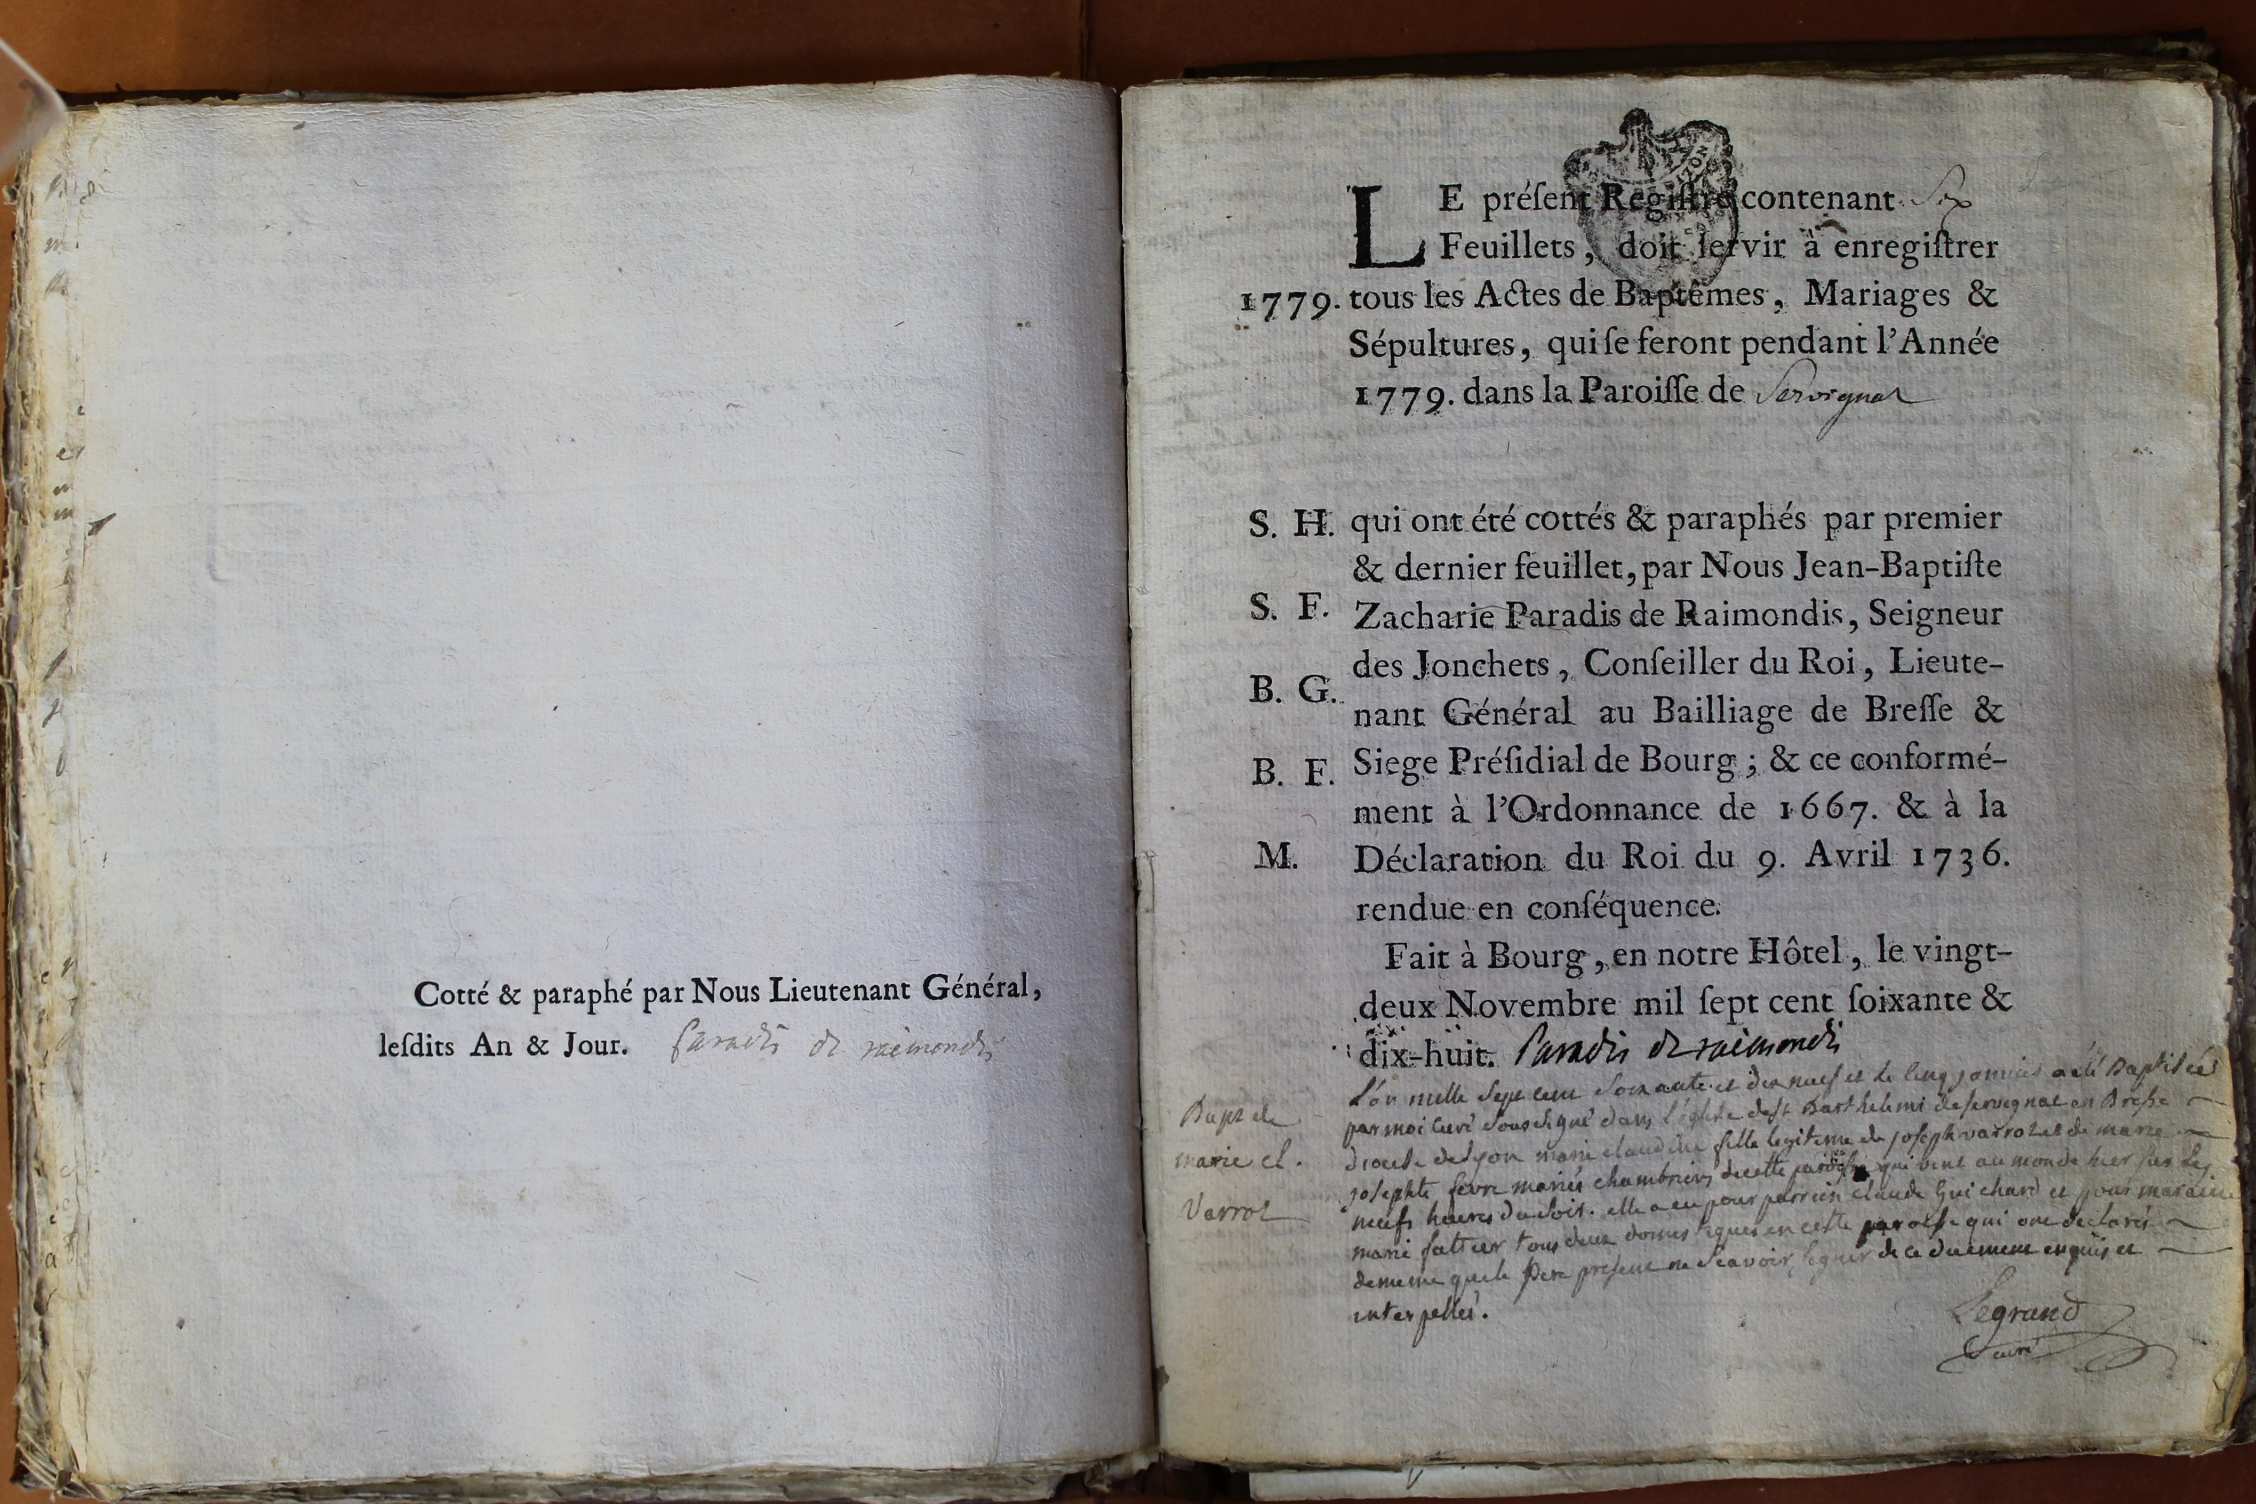 Cotté & paraphé par Nous Lieutenant Général,
leſdits An & Jour. Paradis de raimondis
LE préſent Regiſtre contenant Six
Feuillets, doit ſervir à enregiſtrer
1779. tous les Actes de Baptêmes, Mariages &
Sépultures, qui ſe feront pendant l'Année
1779. dans la Paroiſſe de Servignat
S. H. qui ont été cottés & paraphés par premier
& dernier feuillet, par Nous Jean-Baptiſte
S. F. Zacharie Paradis de Raimondis, Seigneur
des Jonchets, Conſeiller du Roi, Lieute-
B. G. nant Général au Bailliage de Breſſe &
B. F. Siege Préſidial de Bourg; & ce conformé-
ment à l'Ordonnance de 1667. & à la
M. Déclaration du Roi du 9. Avril 1736.
rendue en conſéquence.
Fait à Bourg, en notre Hôtel, le vingt-
deux Novembre mil ſept cent ſoixante &
dix-huit. Paradis de raimondis
Bapt de
marie cl.
Varrot
L'an mille sept cent soixante et dix neuf et le cinq janvier a été Baptisée
par moi curé soussigné dans l'église de st Barthelemi de servignat en Bresse
diocese de lyon marie claudine fille legitime de joseph varrot et de marie
josephte fevre mariés chambriers de cette paroisse qui vint au monde hier sur les
neufs heures du soir. elle a eu pour parrein claude Guichard et pour maraine
marie tous deux domestiques en cette paroisse qui ont declarés
de meme que le Pere present ne sçavoir signer de ce duement enquis et
interpellés.
Legrand
curé